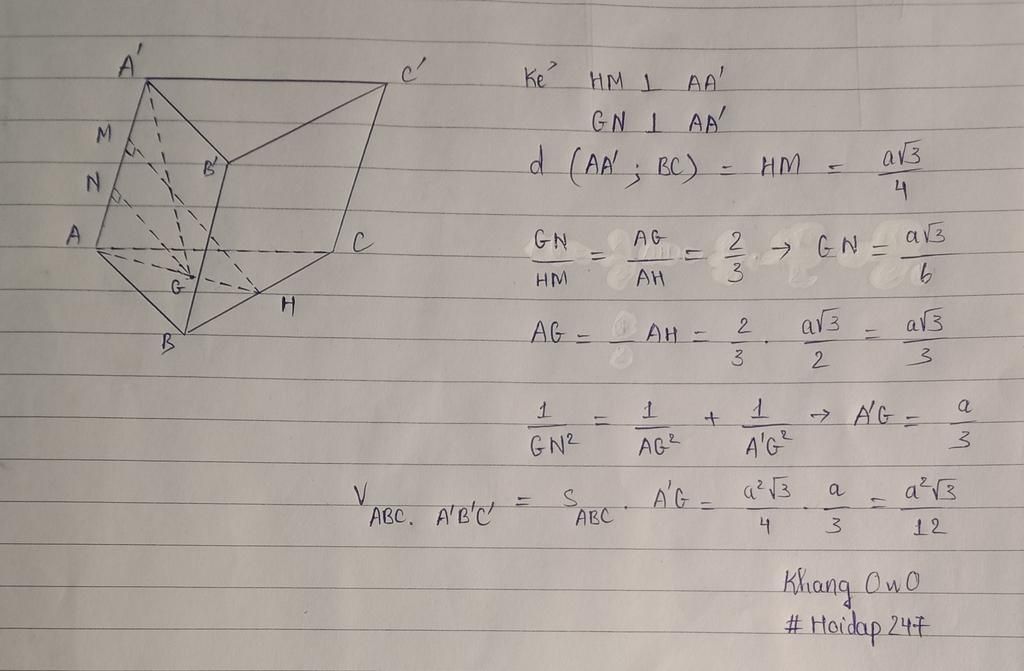 A'
C'
M
B'
N
A
C
G
H
B
Kẻ HM ⊥ AA'
GN ⊥ AA'
d (AA' ; BC) = HM = a√3/4
GN/HM = AG/AH = 2/3 → GN = a√3/6
AG = AH = 2/3 . a√3/2 = a√3/3
1/GN² = 1/AG² + 1/A'G² → A'G = a/3
V_ABC. A'B'C' = S_ABC . A'G = a²√3/4 . a/3 = a²√3/12
Khang OwO
# Hoidap247